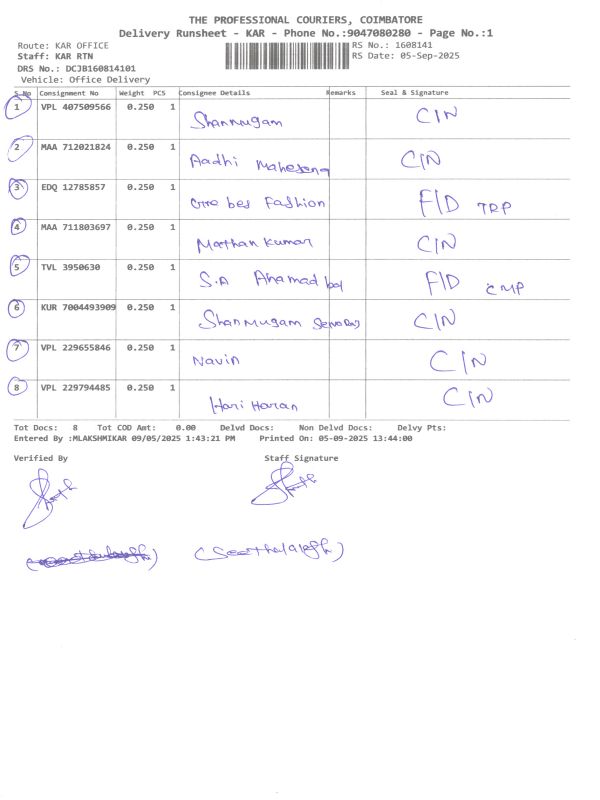 THE PROFESSIONAL COURIERS, COIMBATORE
Delivery Runsheet - KAR - Phone No.:9047080280 - Page No.:1
Route: KAR OFFICE RS No.: 1608141
Staff: KAR RTN RS Date: 05-Sep-2025
DRS No.: DCJB160814101
Vehicle: Office Delivery
S.No Consignment No Weight PCS Consignee Details Remarks Seal & Signature
1 VPL 407509566 0.250 1 Shanmugam C/N
2 MAA 712021824 0.250 1 Aadhi C/N
3 EDQ 12785857 0.250 1 Fashion F/D TRP
4 MAA 711803697 0.250 1 Mathan Kumar C/N
5 TVL 3950630 0.250 1 S.A Ahamad F/D CMP
6 KUR 7004493909 0.250 1 Shanmugam C/N
7 VPL 229655846 0.250 1 Navin C/N
8 VPL 229794485 0.250 1 Hari Haran C/N
Tot Docs: 8 Tot COD Amt: 0.00 Delvd Docs: Non Delvd Docs: Delvy Pts:
Entered By :MLAKSHMIKAR 09/05/2025 1:43:21 PM Printed On: 05-09-2025 13:44:00
Verified By Staff Signature